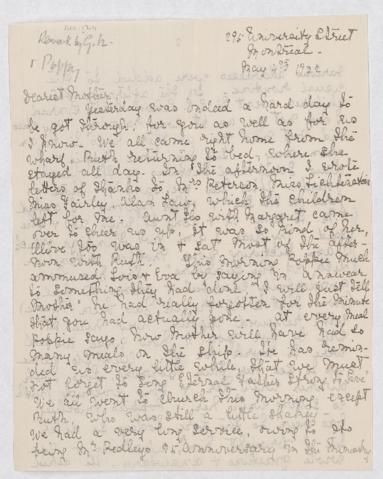 295 University Street
Montreal.
May 1922
Poppy
Dearest Mother
Yesterday was indeed a hard day to
be got through, for you as well as for us
I know. We all came right home from the
wharf, Ruth returning to bed, where she
stayed all day. In the afternoon I wrote
letters of thanks to Mrs Peterson, Miss
Miss Fairley, Alan Law, which the children
left for me. Aunt Flo with Margaret came
over to cheer us up, it was so kind of her,
Olive too was in & sat most of the after-
noon with Ruth. This morning Poppie much
ammused Lois & Eva by saying in answear
to something they had done "I will just tell
Mother" he had really forgotten for the minute
that you had actually gone. At every meal
Poppie says, now Mother will have had so
many meals on the ship. He has remin-
ded us every little while, that we must
not forget to sing "Eternal Father Strong to Save"
We all went to Church this morning except
Ruth, who was still a little shakey.
We had a very long service, owing to its
being Mr Pedleys 25 Anniversary in the Ministry